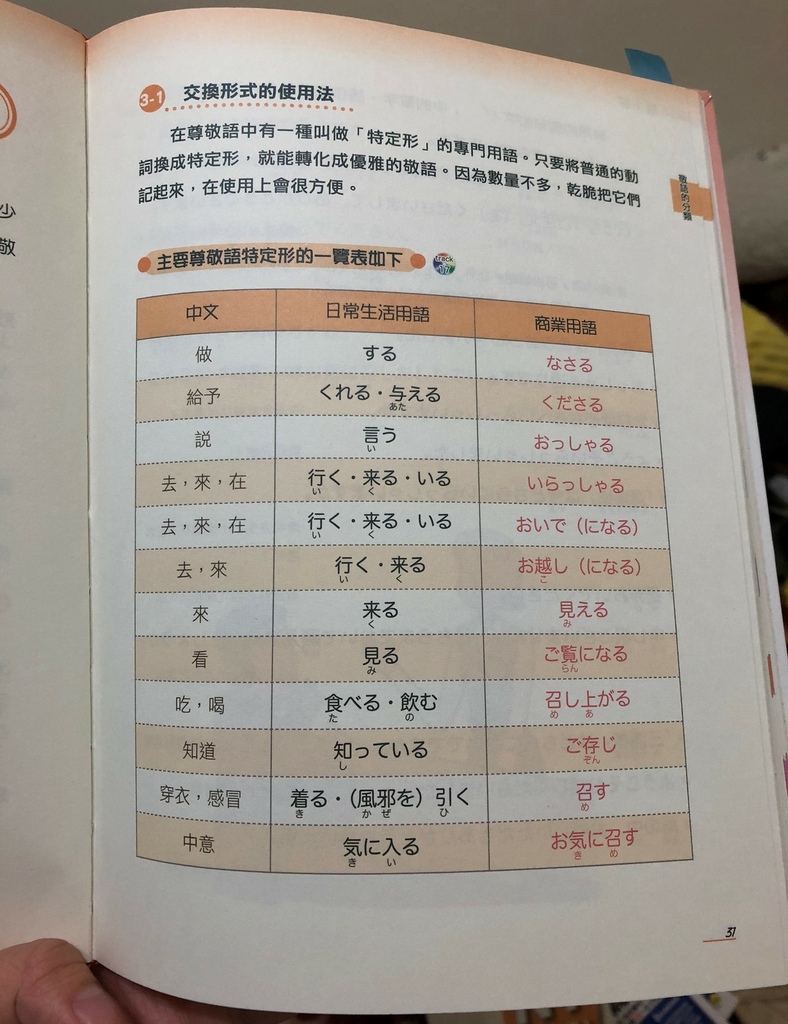 少
敬
3-1 交換形式的使用法
在尊敬語中有一種叫做「特定形」的專門用語。只要將普通的動
詞換成特定形，就能轉化成優雅的敬語。因為數量不多，乾脆把它們
記起來，在使用上會很方便。
敬語的分類
主要尊敬語特定形的一覽表如下 track 07
中文 日常生活用語 商業用語
做 する なさる
給予 くれる・与える くださる
あた
説 言う おっしゃる
い
去，來，在 行く・来る・いる いらっしゃる
い く
去，來，在 行く・来る・いる おいで（になる）
い く
去，來 行く・来る お越し（になる）
い く こ
來 来る 見える
く み
看 見る ご覧になる
み らん
吃，喝 食べる・飲む 召し上がる
た の め あ
知道 知っている ご存じ
し ぞん
穿衣，感冒 着る・（風邪を）引く 召す
き か ぜ ひ め
中意 気に入る お気に召す
き い き め
31